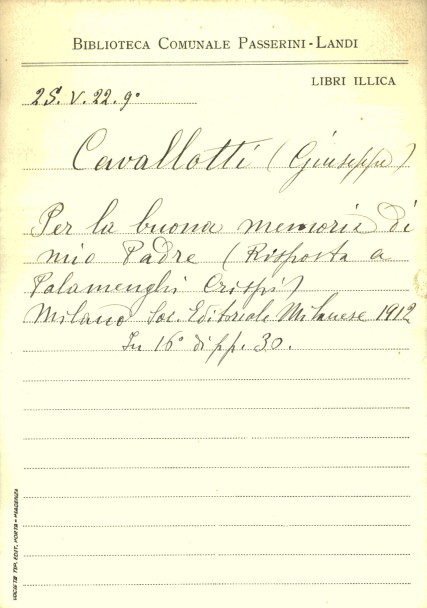 BIBLIOTECA COMUNALE PASSERINI-LANDI
LIBRI ILLICA
2S. V. 22. 9°
Cavallotti (Giuseppe)
Per la buona memoria di
mio Padre (Risposta a
Palamenghi Crispi)
Milano Soc. Editoriale Milanese 1912
In 16° di pp. 30.
SOCIETÀ TIP. EDIT. PORTA - PIACENZA